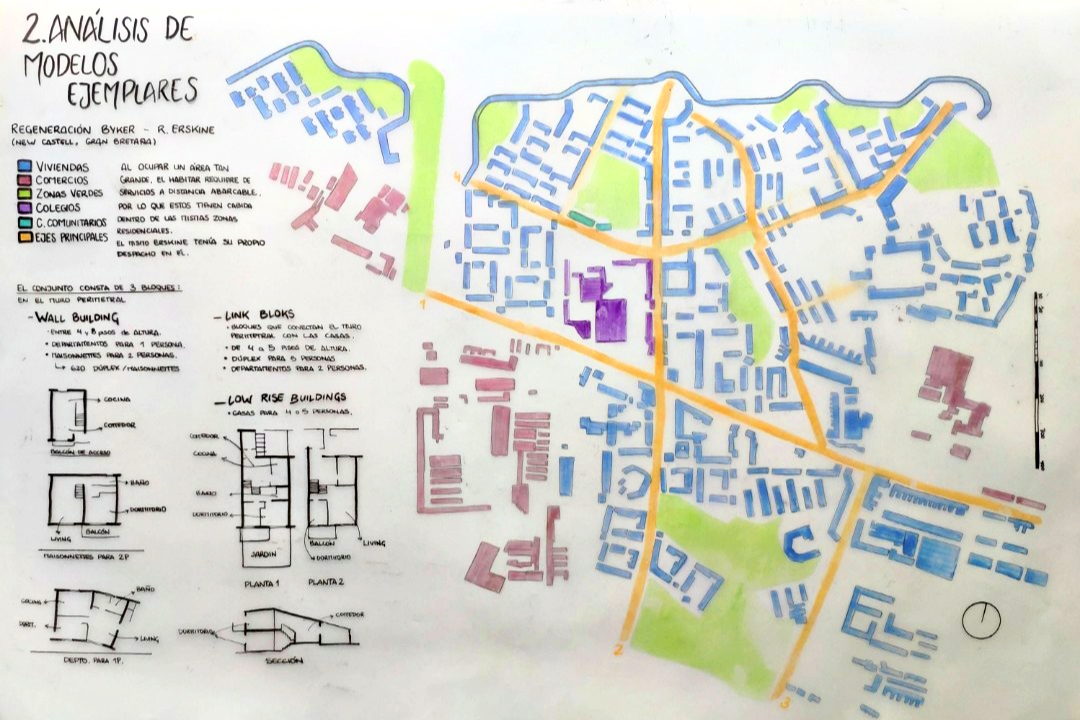 2. ANÁLISIS DE
MODELOS
EJEMPLARES
REGENERACIÓN BYKER - R. ERSKINE
(NEW CASTELL, GRAN BRETAÑA)
VIVIENDAS
COMERCIOS
ZONAS VERDES
COLEGIOS
C. COMUNITARIOS
EJES PRINCIPALES
AL OCUPAR UN ÁREA TAN
GRANDE, EL HABITAR REQUIERE DE
SERVICIOS A DISTANCIA ABARCABLE,
POR LO QUE ESTOS TIENEN CABIDA
DENTRO DE LAS MISMAS ZONAS
RESIDENCIALES.
EL MISMO ERSKINE TENÍA SU PROPIO
DESPACHO EN EL.
EL CONJUNTO CONSTA DE 3 BLOQUES:
EN EL MURO PERIMETRAL
- WALL BUILDING
• ENTRE 4 y 8 pisos de ALTURA.
• DEPARTAMENTOS PARA 1 PERSONA.
• MAISONNETTES PARA 2 PERSONAS.
↳ 620 DÚPLEX / MAISONNETTES
COCINA
COMEDOR
BALCÓN DE ACCESO
BAÑO
DORMITORIO
LIVING
BALCÓN
MAISONNETTES PARA 2P
COCINA
BAÑO
DORMT.
LIVING
DEPTO. PARA 1P.
- LINK BLOKS
• BLOQUES QUE CONECTAN EL MURO
PERIMETRAL CON LAS CASAS.
• DE 4 a 5 PISOS DE ALTURA.
• DÚPLEX PARA 5 PERSONAS
• DEPARTAMENTOS PARA 2 PERSONAS.
- LOW RISE BUILDINGS
• CASAS PARA 4 o 5 PERSONAS.
COMEDOR
COCINA
BAÑO
DORMITORIO
JARDIN
BALCON
LIVING
DORMITORIO
PLANTA 1
PLANTA 2
DORMITORIO
COMEDOR
SECCIÓN
4
1
2
3